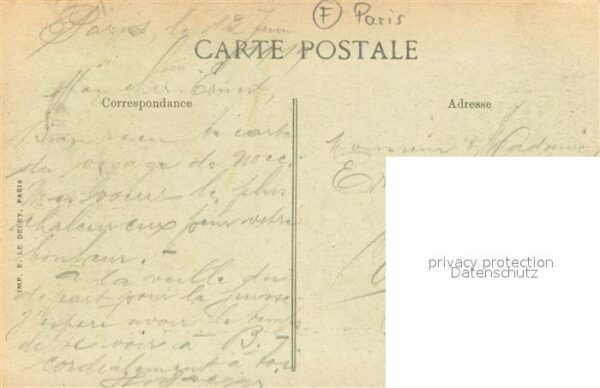 F Paris
Paris, le 12 Juin
CARTE POSTALE
Mon cher Ernest,
Correspondance
Adresse
Bien reçu ta carte
du voyage de Noce.
Mes voeux les plus
chaleureux pour votre
bonheur. -
A la veille du
départ pour la
J'espère avoir le temps
de te voir à B.
cordialement à toi
Monsieur & Madame
IMP. E. LE DELEY, PARIS
privacy protection
Datenschutz